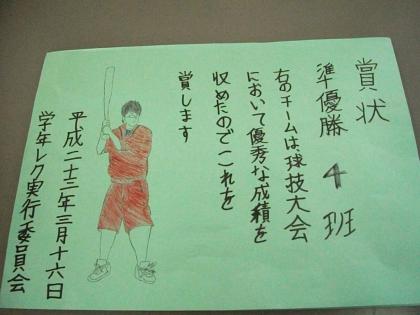 賞状
準優勝 4班
右のチームは、球技大会
において優秀な成績を
収めたのでこれを
賞します
平成二十三年三月十六日
学年レク実行委員会